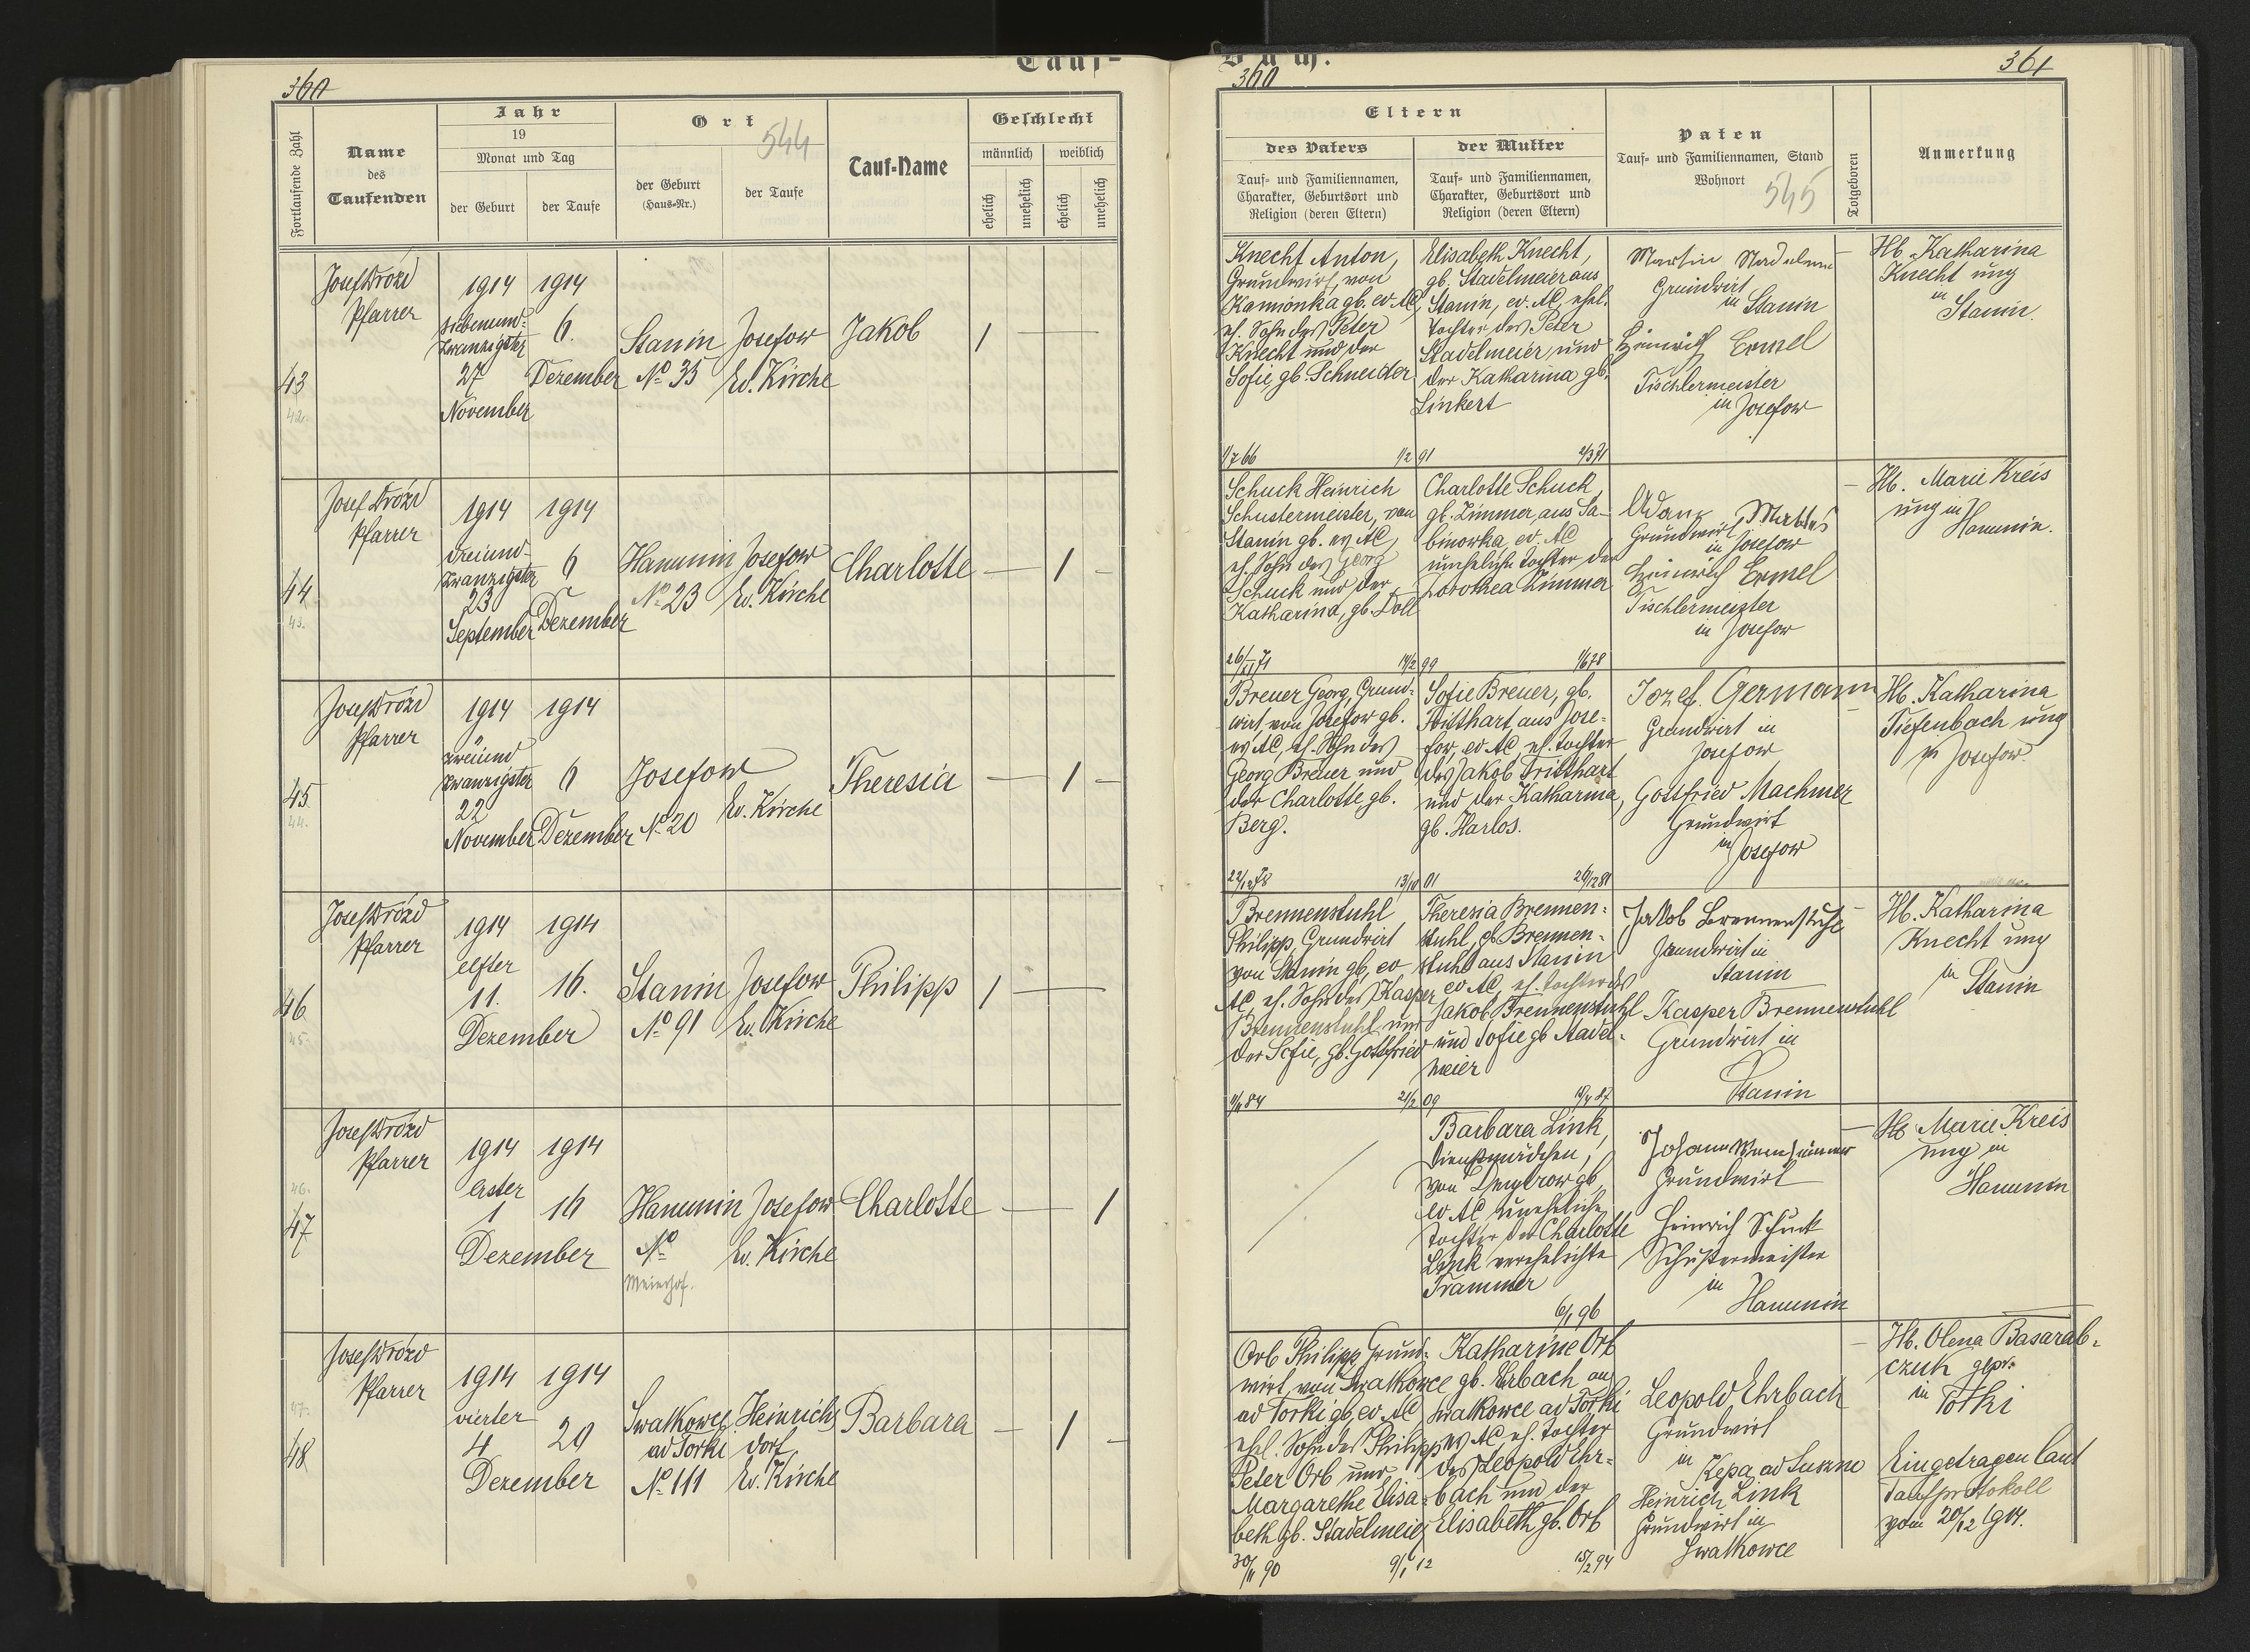 Tauf-
360
Fortlaufende Zahl
Name
des
Taufenden
Jahr
19
Monat und Tag
der Geburt
der Taufe
Ort
544
der Geburt
(Haus-Nr.)
der Taufe
Tauf-Name
Geschlecht
männlich
weiblich
ehelich
unehelich
ehelich
unehelich
43
42.
Josef Drózd
Pfarrer
1914
siebenund-
zwanzigster
27
November
1914
6.
Dezember
Stanin
No 35
Josefow
Ev. Kirche
Jakob
1
44
43.
Josef Drózd
Pfarrer
1914
dreiund-
zwanzigster
23
September
1914
6
Dezember
Hanunin
No 23
Josefow
Ev. Kirche
Charlotte
1
45
44.
Josef Drózd
Pfarrer
1914
zweiund
zwanzigster
22
November
1914
6
Dezember
Josefow
No 20
Ev. Kirche
Theresia
1
46
45.
Josef Drózd
Pfarrer
1914
elfter
11.
Dezember
1914
16.
Stanin
No 91
Josefow
Ev. Kirche
Philipp
1
46.
47
Josef Drózd
Pfarrer
1914
erster
1
Dezember
1914
16
Hanunin
No
Meierhof.
Josefow
Ev. Kirche
Charlotte
1
47.
48
Josef Drózd
Pfarrer
1914
vierter
4
Dezember
1914
20
Swatkowce
ad Torki
No 111
Heinrichs
dorf
Ev. Kirche
Barbara
1
Buch.
360
361
Eltern
des Vaters
Tauf- und Familiennamen,
Charakter, Geburtsort und
Religion (deren Eltern)
der Mutter
Tauf- und Familiennamen,
Charakter, Geburtsort und
Religion (deren Eltern)
Paten
Tauf- und Familiennamen, Stand
Wohnort
545
Totgeboren
Anmerkung
Knecht Anton,
Grundwirt, von
Kamionka gb. ev. AC,
eh. Sohn des Peter
Knecht und der
Sofie, gb. Schneider
1/7 66
1/2 91
Elisabeth Knecht,
gb. Stadelmeier aus
Stanin, ev. AC, ehel.
Tochter des Peter
Stadelmeier und
der Katharina gb.
Linkert
2/3 71
Martin
Grundwirt
in Stanin
Heinrich Ermel
Tischlermeister
in Josefow
Hb. Katharina
Knecht ung
in
Stanin.
Schuck Heinrich
Schustermeister, von
Stanin gb. ev. AC,
eh. Sohn des Georg
Schuck und der
Katharina, gb. Doll
14/2 99
Charlotte Schuck,
gb. Zimmer, aus Sa-
binowka, ev. AC
uneheliche Tochter der
Dorothea Zimmer
1/6 78
Adam Mattes
Grundwirt
in Josefow
Heinrich Ermel
Tischlermeister
in Josefow
Hb. Marie Kreis
ung in
Hanunin.
Breuer Georg, Grund-
wirt, von Josefow gb.
ev AC, eh. Sohn des
Georg Breuer und
der Charlotte, gb.
Berg.
22/12 78
13/10 01
Sofie Breuer, gb.
Tritthart, aus Jose-
fow, ev AC, eh. Tochter
des Jakob Tritthart
und der Katharina,
gb. Harlos.
Jozef. Germann
Grundwirt in
Josefow
Gottfried Machmer
Grundwirt
in
Josefow
Hb. Katharina
Tiefenbach ung
in Josefow.
Brennenstuhl
Philipp, Grundwirt
von Stanin gb, ev
AC, eh. Sohn des Kasper
Brennenstuhl und
der Sofie, gb. Gottfried
21/2 09
Theresia Brennen-
stuhl, gb Brennen-
stuhl aus Stanin
ev AC, eh. Tochter des
Jakob Brennenstuhl
und Sofie gb Stadel-
meier
Jakob Brennenstuhl
Grundwirt in
Stanin
Kasper Brennenstuhl
Grundwirt in
Stanin
Hb. Katharina
Knecht ung
in
Stanin
Barbara Link,
Dienstmädchen,
von
ev AC uneheliche
Tochter der Charlotte
Link verehelichte
Trammer
6/1 96
Johann
Grundwirt
Heinrich Schuck
Schustermeister
in
Hanunin
Hb Marie Kreis
ung in
Hanunin
Orb Philipp, Grund-
wirt, von Swatkowce
ad Torki gb, ev AC
ehel. Sohn des Philipp
Peter Orb und
Margarethe Elisa-
beth gb. Stadelmeier
30/11 90
9/1 12
Katharine Orb
gb. Ehrbach aus
Swatkowce ad Torki
ev AC eh. Tochter
des Leopold Ehr-
bach und der
Elisabeth gb. Orb
15/2 94
Leopold Ehrbach
Grundwirt
in
Kępa ad Suszno
Heinrich Link
Grundwirt in
Swatkowce
Hb. Olena Basarab-
czuk gepr.
in
Torki
Eingetragen laut
Taufprotokoll
vom 20/12 1914.